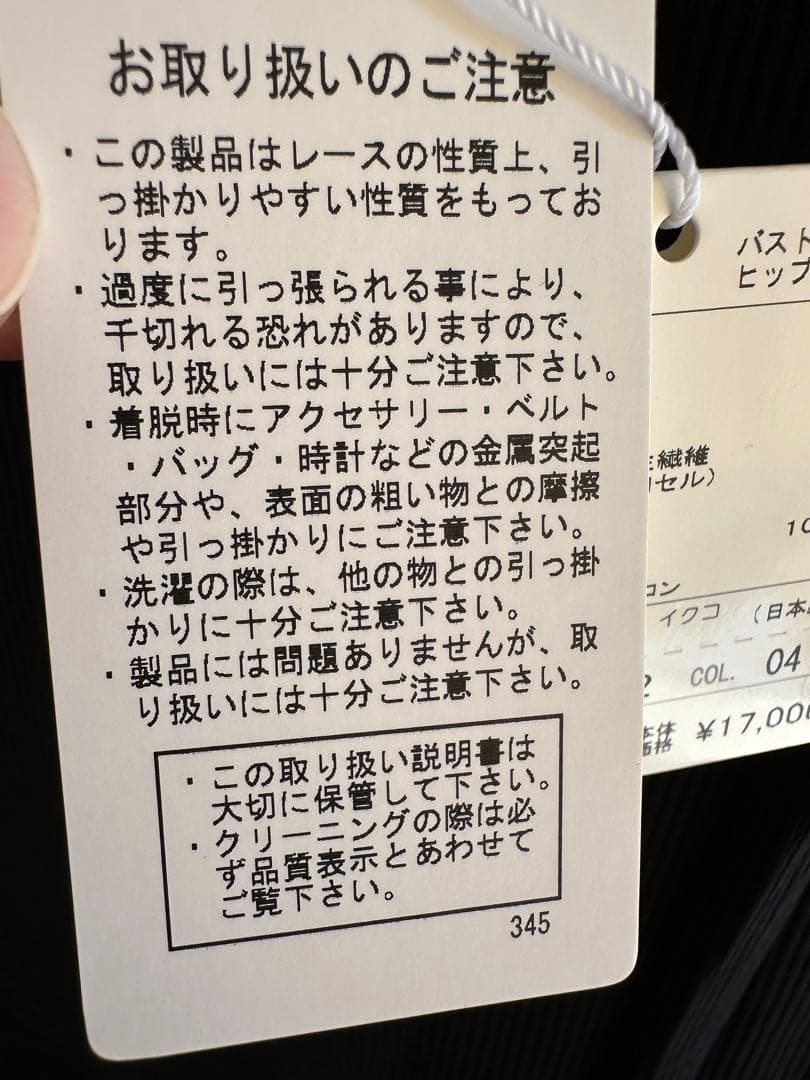 お取り扱いのご注意
・この製品はレースの性質上、引
っ掛かりやすい性質をもってお
ります。
・過度に引っ張られる事により、
千切れる恐れがありますので、
取り扱いには十分ご注意下さい。
・着脱時にアクセサリー・ベルト
・バッグ・時計などの金属突起
部分や、表面の粗い物との摩擦
や引っ掛かりにご注意下さい。
・洗濯の際は、他の物との引っ掛
かりに十分ご注意下さい。
・製品には問題ありませんが、取
り扱いには十分ご注意下さい。
・この取り扱い説明書は
大切に保管して下さい。
・クリーニングの際は必
ず品質表示とあわせて
ご覧下さい。
345
バスト
ヒップ
繊維
セル）
10
コン
イクコ （日本
2 COL. 04
本体
価格 ¥17,000